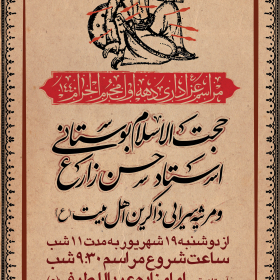 مراسم عزاداری دهه اول محرم الحرام ۱۴۴۰
حجت الاسلام بوستانی
استاد حسن زارع
و مرثیه سرایی ذاکرین اهل بیت (ع)
از دوشنبه ۱۹ شهریور به مدت ۱۱ شب
ساعت شروع مراسم ۹:۳۰ شب